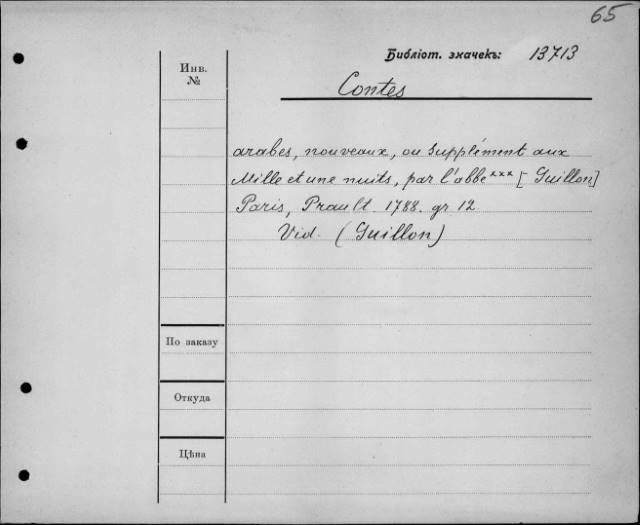 65
Библіот. значекъ: 13713
Инв.
№
Contes
arabes, nouveaux, ou Supplément aux
Mille et une nuits, par l'abbé *** [Guillon]
Paris, Prault 1788. gr 12.
Vid. (Guillon)
По заказу
Откуда
Цѣна